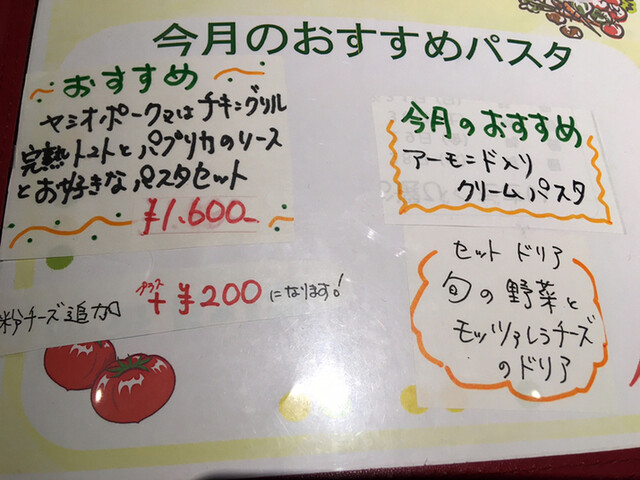 今月のおすすめパスタ
おすすめ
ヤシオポークマはチキングリル
完熟トマトとパプリカのソース
とお好きなパスタセット
¥1.600-
粉チーズ追加 プラス + ¥200 になります!
今月のおすすめ
アーモンド入り
クリームパスタ
セット ドリア
旬の野菜と
モッツァレラチーズ
のドリア